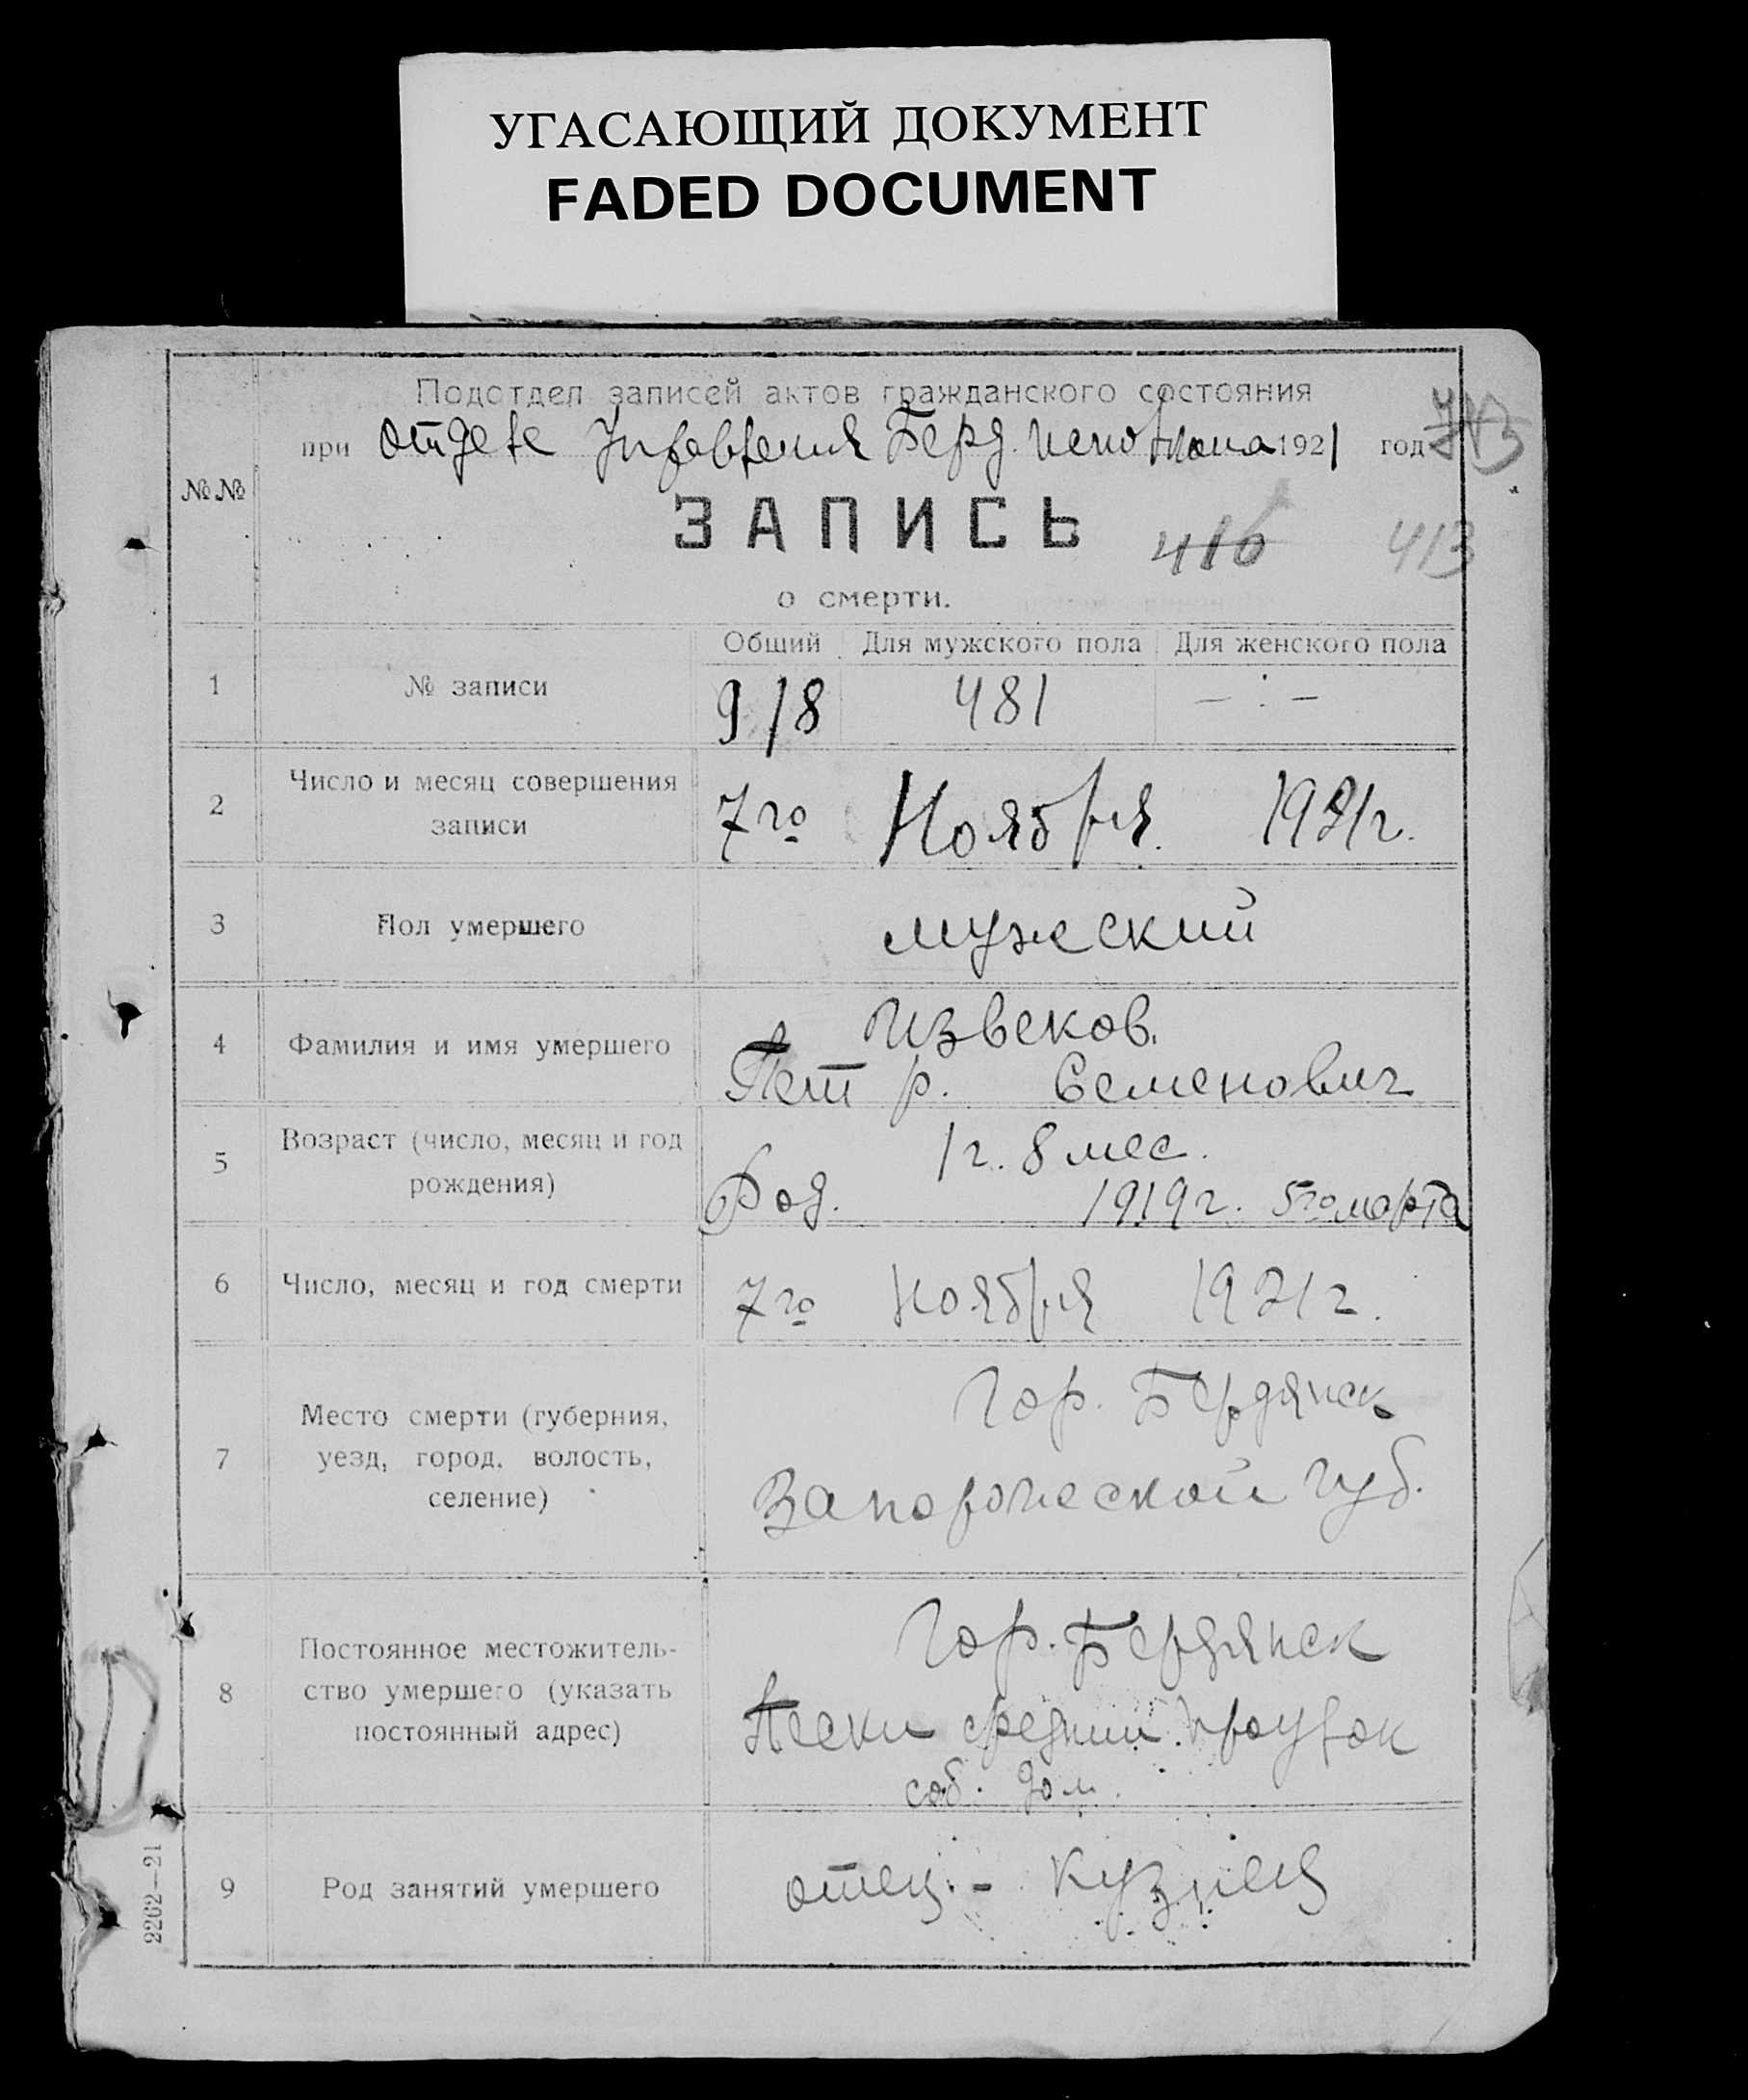 УГАСАЮЩИЙ ДОКУМЕНТ
FADED DOCUMENT
Подотдел записей актов гражданского состояния
при отделе Управления Берд. исполкома 1921 год
№№
ЗАПИСЬ
416 413
о смерти.
Общий Для мужского пола Для женского пола
1 № записи 918 481 — : —
2 Число и месяц совершения
записи 7го Ноября. 1921г.
3 Пол умершего мужеский
4 Фамилия и имя умершего Извеков.
Петр. Семенович
5 Возраст (число, месяц и год
рождения) 1 г. 8 мес.
Род. 1919 г. 5го марта
6 Число, месяц и год смерти 7го Ноября 1921 г.
7 Место смерти (губерния,
уезд, город, волость,
селение)
Гор. Бердянск
Запорожеской губ.
8 Постоянное местожитель-
ство умершего (указать
постоянный адрес)
Гор. Бердянск
Пески средний проулок
соб. дом.
9 Род занятий умершего отец - кузнец
2262—21